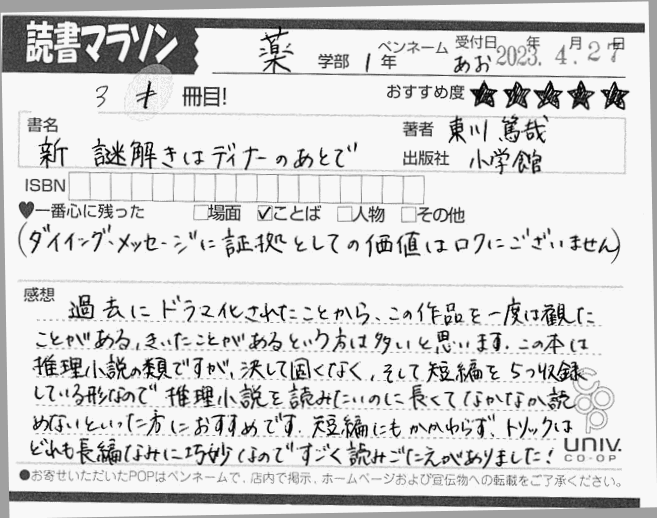 読書マラソン
薬 学部 1年 ペンネーム あお 受付日 2023.年 4.月 27日
3 冊目! おすすめ度 ★★★★★
書名 新 謎解きはディナーのあとで
著者 東川 篤哉
出版社 小学館
ISBN
♥一番心に残った □場面 ☑ことば □人物 □その他
(ダイイング・メッセージに証拠としての価値はロクにございません)
感想 過去にドラマ化されたことから、この作品を一度は観た
ことがある、きいたことがあるという方は多いと思います。この本は
推理小説の類ですが、決して固くなく、そして短編を5つ収録
している形なので推理小説を読みたいのに長くてなかなか読
めないといった方におすすめです。短編にもかかわらず、トリックは
どれも長編なみに巧妙なのですごく読みごたえがありました!
coop
UNIV.
CO-OP
●お寄せいただいたPOPはペンネームで、店内で掲示、ホームページおよび宣伝物への転載をご了承ください。